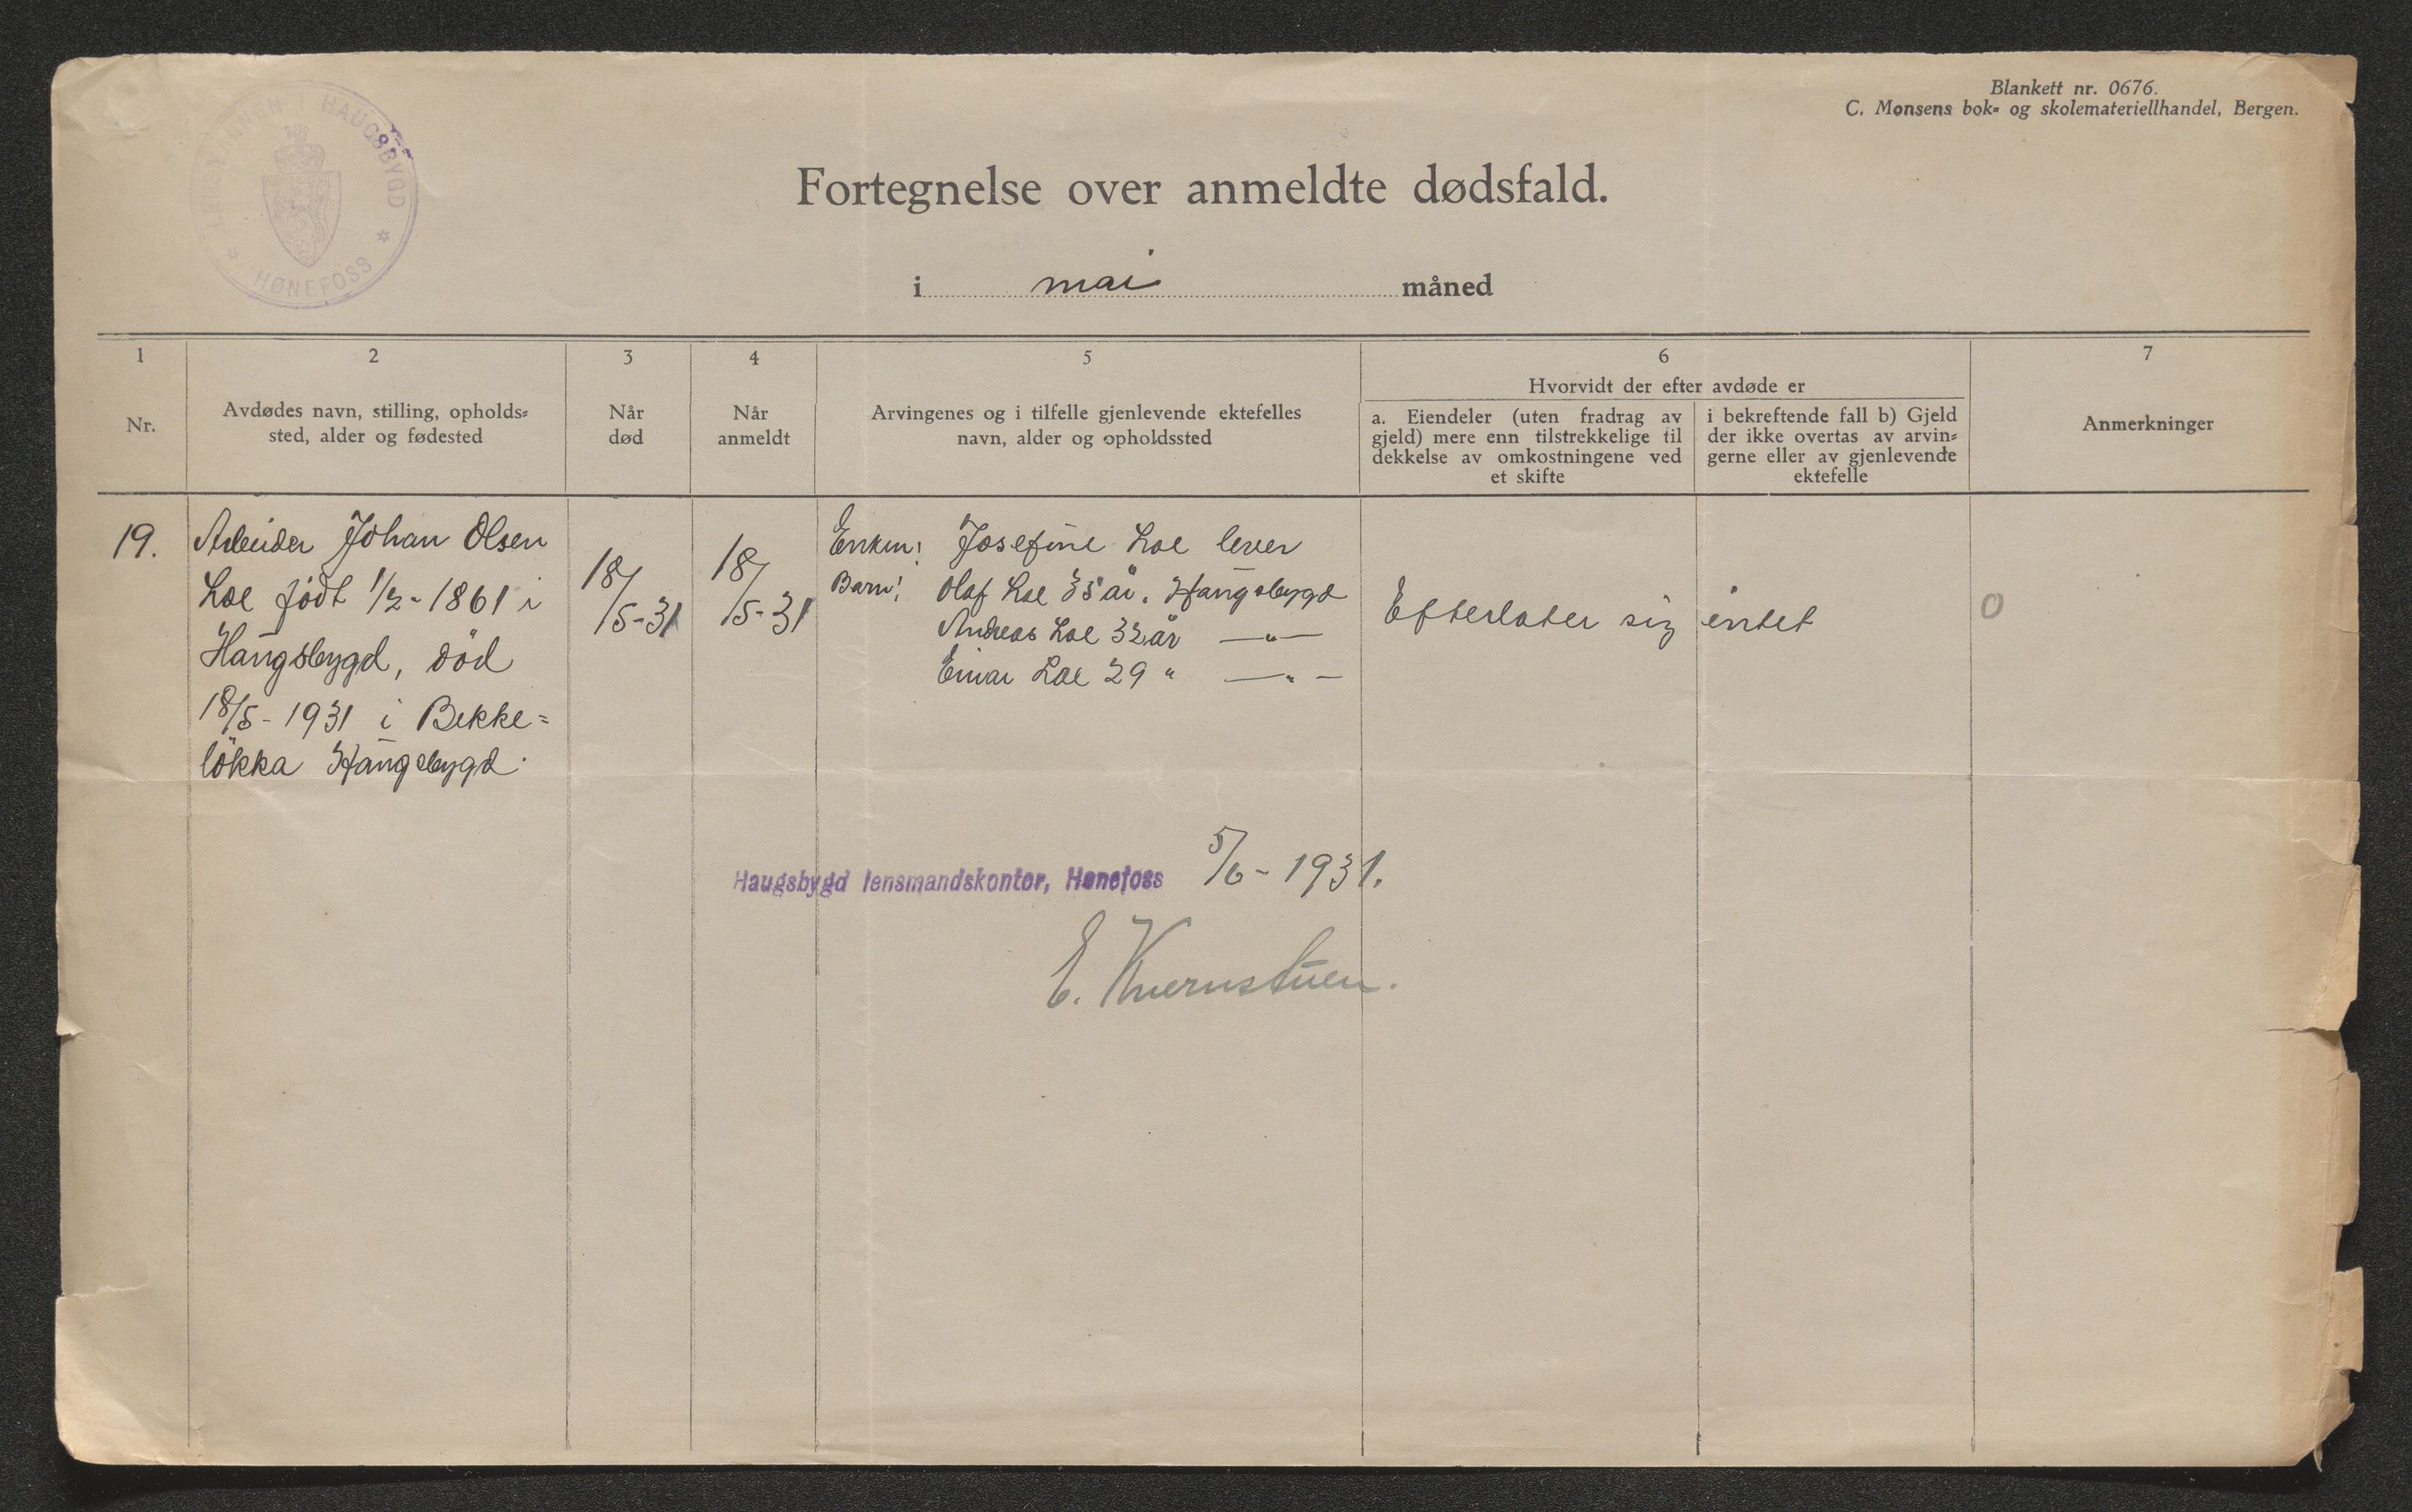 LENSMANNEN I HAUGSBYGD
HØNEFOSS
Blankett nr. 0676.
C. Monsens bok- og skolemateriellhandel, Bergen.
Fortegnelse over anmeldte dødsfald.
i mai måned
1
Nr.
2
Avdødes navn, stilling, opholds-
sted, alder og fødested
3
Når
død
4
Når
anmeldt
5
Arvingenes og i tilfelle gjenlevende ektefelles
navn, alder og opholdssted
6
Hvorvidt der efter avdøde er
a. Eiendeler (uten fradrag av
gjeld) mere enn tilstrekkelige til
dekkelse av omkostningene ved
et skifte
i bekreftende fall b) Gjeld
der ikke overtas av arvin-
gerne eller av gjenlevende
ektefelle
7
Anmerkninger
19.
Arbeider Johan Olsen
Loe født 1/2-1861 i
Haugsbygd, död
18/5-1931 i Bekke=
løkka Haugsbygd.
18/5-31
18/5-31
Enken: Josefine Loe lever
Barn: Olaf Loe 35 år. Haugsbygd
Andreas Loe 32 år —"—
Einar Loe 29 " —"—
Efterlater sig intet
0
Haugsbygd lensmandskontor, Hønefoss 5/6-1931.
E. Kvernstuen.